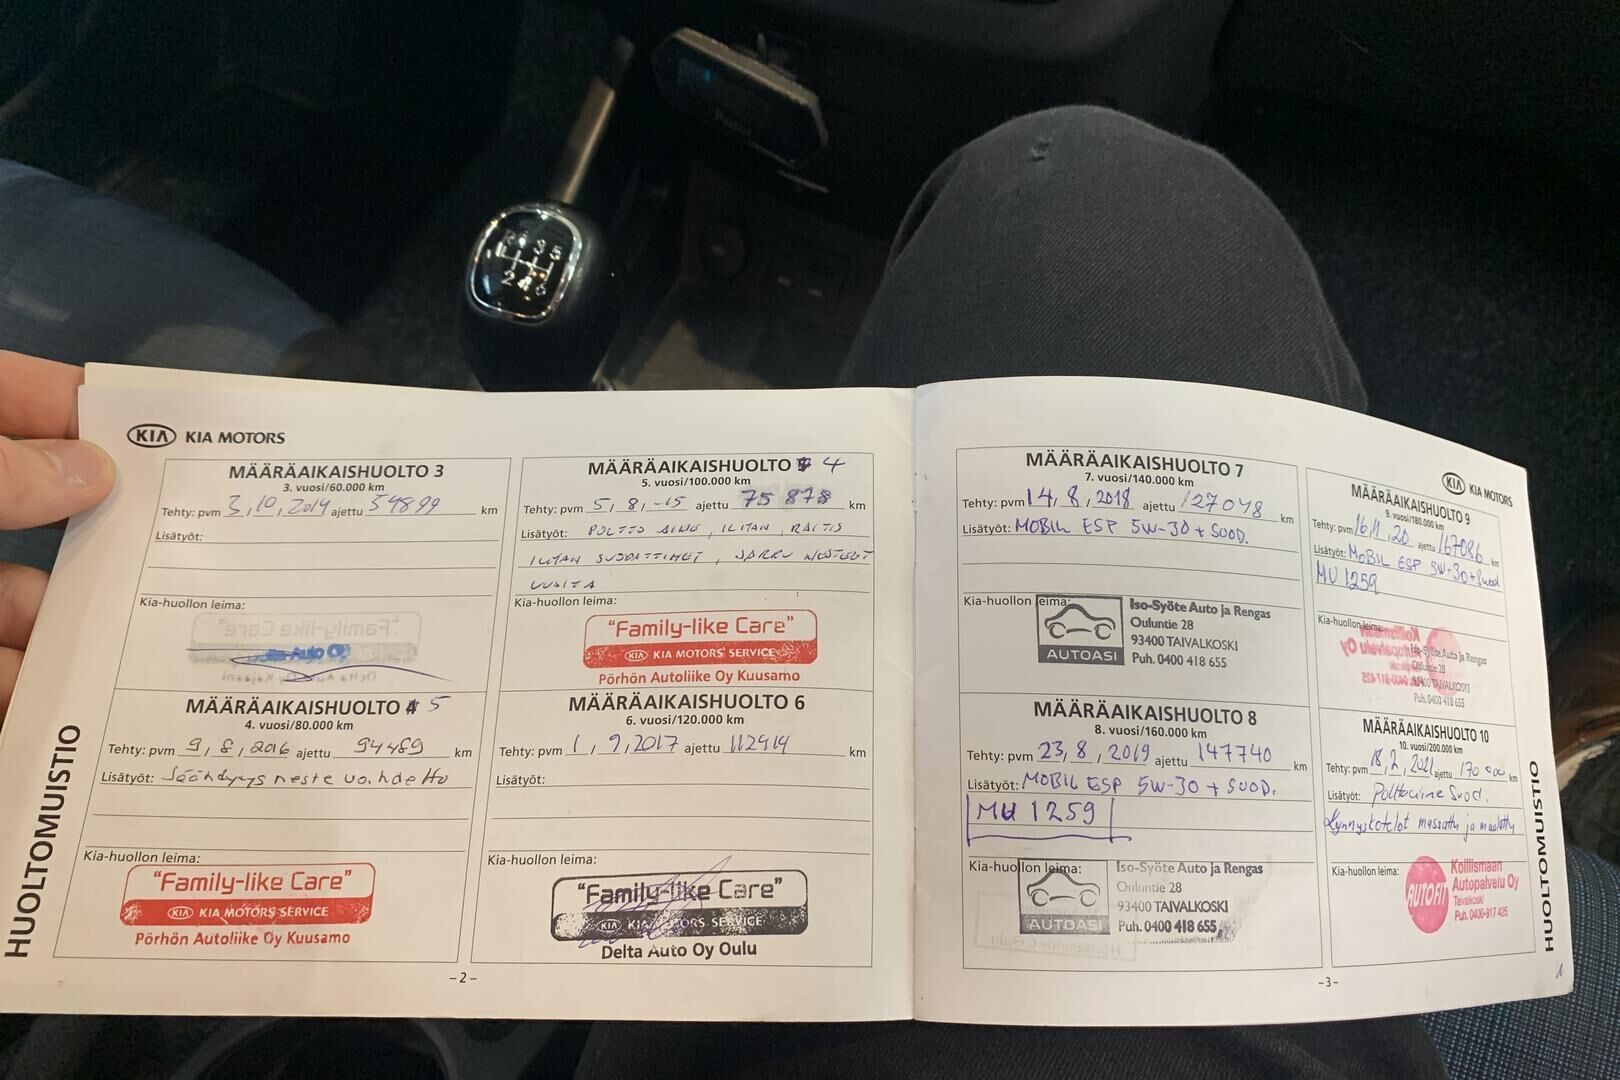 R 3 5
2 4 6
KIA KIA MOTORS
MÄÄRÄAIKAISHUOLTO 3
3. vuosi/60.000 km
Tehty: pvm 3,10,2014 ajettu 54899 km
Lisätyöt:
Kia-huollon leima:
"Family-like Care"
Auto Oy
MÄÄRÄAIKAISHUOLTO 5
4. vuosi/80.000 km
Tehty: pvm 9,8,2016 ajettu 94489 km
Lisätyöt: Jäähdytys neste vaihdettu
Kia-huollon leima:
"Family-like Care"
KIA KIA MOTORS SERVICE
Pörhön Autoliike Oy Kuusamo
MÄÄRÄAIKAISHUOLTO 4
5. vuosi/100.000 km
Tehty: pvm 5,8,-15 ajettu 75 878 km
Lisätyöt: POLTTO AINE, ILMAN, RAITIS
ILMAN SUODATTIMET, JARRU NESTEET
UUSITTA
Kia-huollon leima:
"Family-like Care"
KIA KIA MOTORS SERVICE
Pörhön Autoliike Oy Kuusamo
MÄÄRÄAIKAISHUOLTO 6
6. vuosi/120.000 km
Tehty: pvm 1,9,2017 ajettu 112414 km
Lisätyöt:
Kia-huollon leima:
"Family-like Care"
KIA KIA MOTORS SERVICE
Delta Auto Oy Oulu
HUOLTOMUISTIO
-2-
MÄÄRÄAIKAISHUOLTO 7
7. vuosi/140.000 km
Tehty: pvm 14,8,2018 ajettu 127048 km
Lisätyöt: MOBIL ESP 5W-30 + SUOD.
Kia-huollon leima:
AUTOASI
Iso-Syöte Auto ja Rengas
Ouluntie 28
93400 TAIVALKOSKI
Puh. 0400 418 655
MÄÄRÄAIKAISHUOLTO 8
8. vuosi/160.000 km
Tehty: pvm 23,8,2019 ajettu 147740 km
Lisätyöt: MOBIL ESP 5W-30 + SUOD.
MU 1259
Kia-huollon leima:
AUTOASI
Iso-Syöte Auto ja Rengas
Ouluntie 28
93400 TAIVALKOSKI
Puh. 0400 418 655
KIA KIA MOTORS
MÄÄRÄAIKAISHUOLTO 9
9. vuosi/180.000 km
Tehty: pvm 16,11,20 ajettu 167086 km
Lisätyöt: MOBIL ESP 5W-30+Suod
MU 1259
Kia-huollon leima:
Iso-Syöte Auto ja Rengas
Ouluntie 28
93400 TAIVALKOSKI
Puh. 0400 418 655
MÄÄRÄAIKAISHUOLTO 10
10. vuosi/200.000 km
Tehty: pvm 18,2,2021 ajettu 170 000 km
Lisätyöt: Polttoaine Suod.
Kynnyskotelot massattu ja maalattu
Kia-huollon leima:
AUTOFIT
Koillismaan
Autopalvelu Oy
Taivalkoski
Puh. 0400-917 425
HUOLTOMUISTIO
-3-